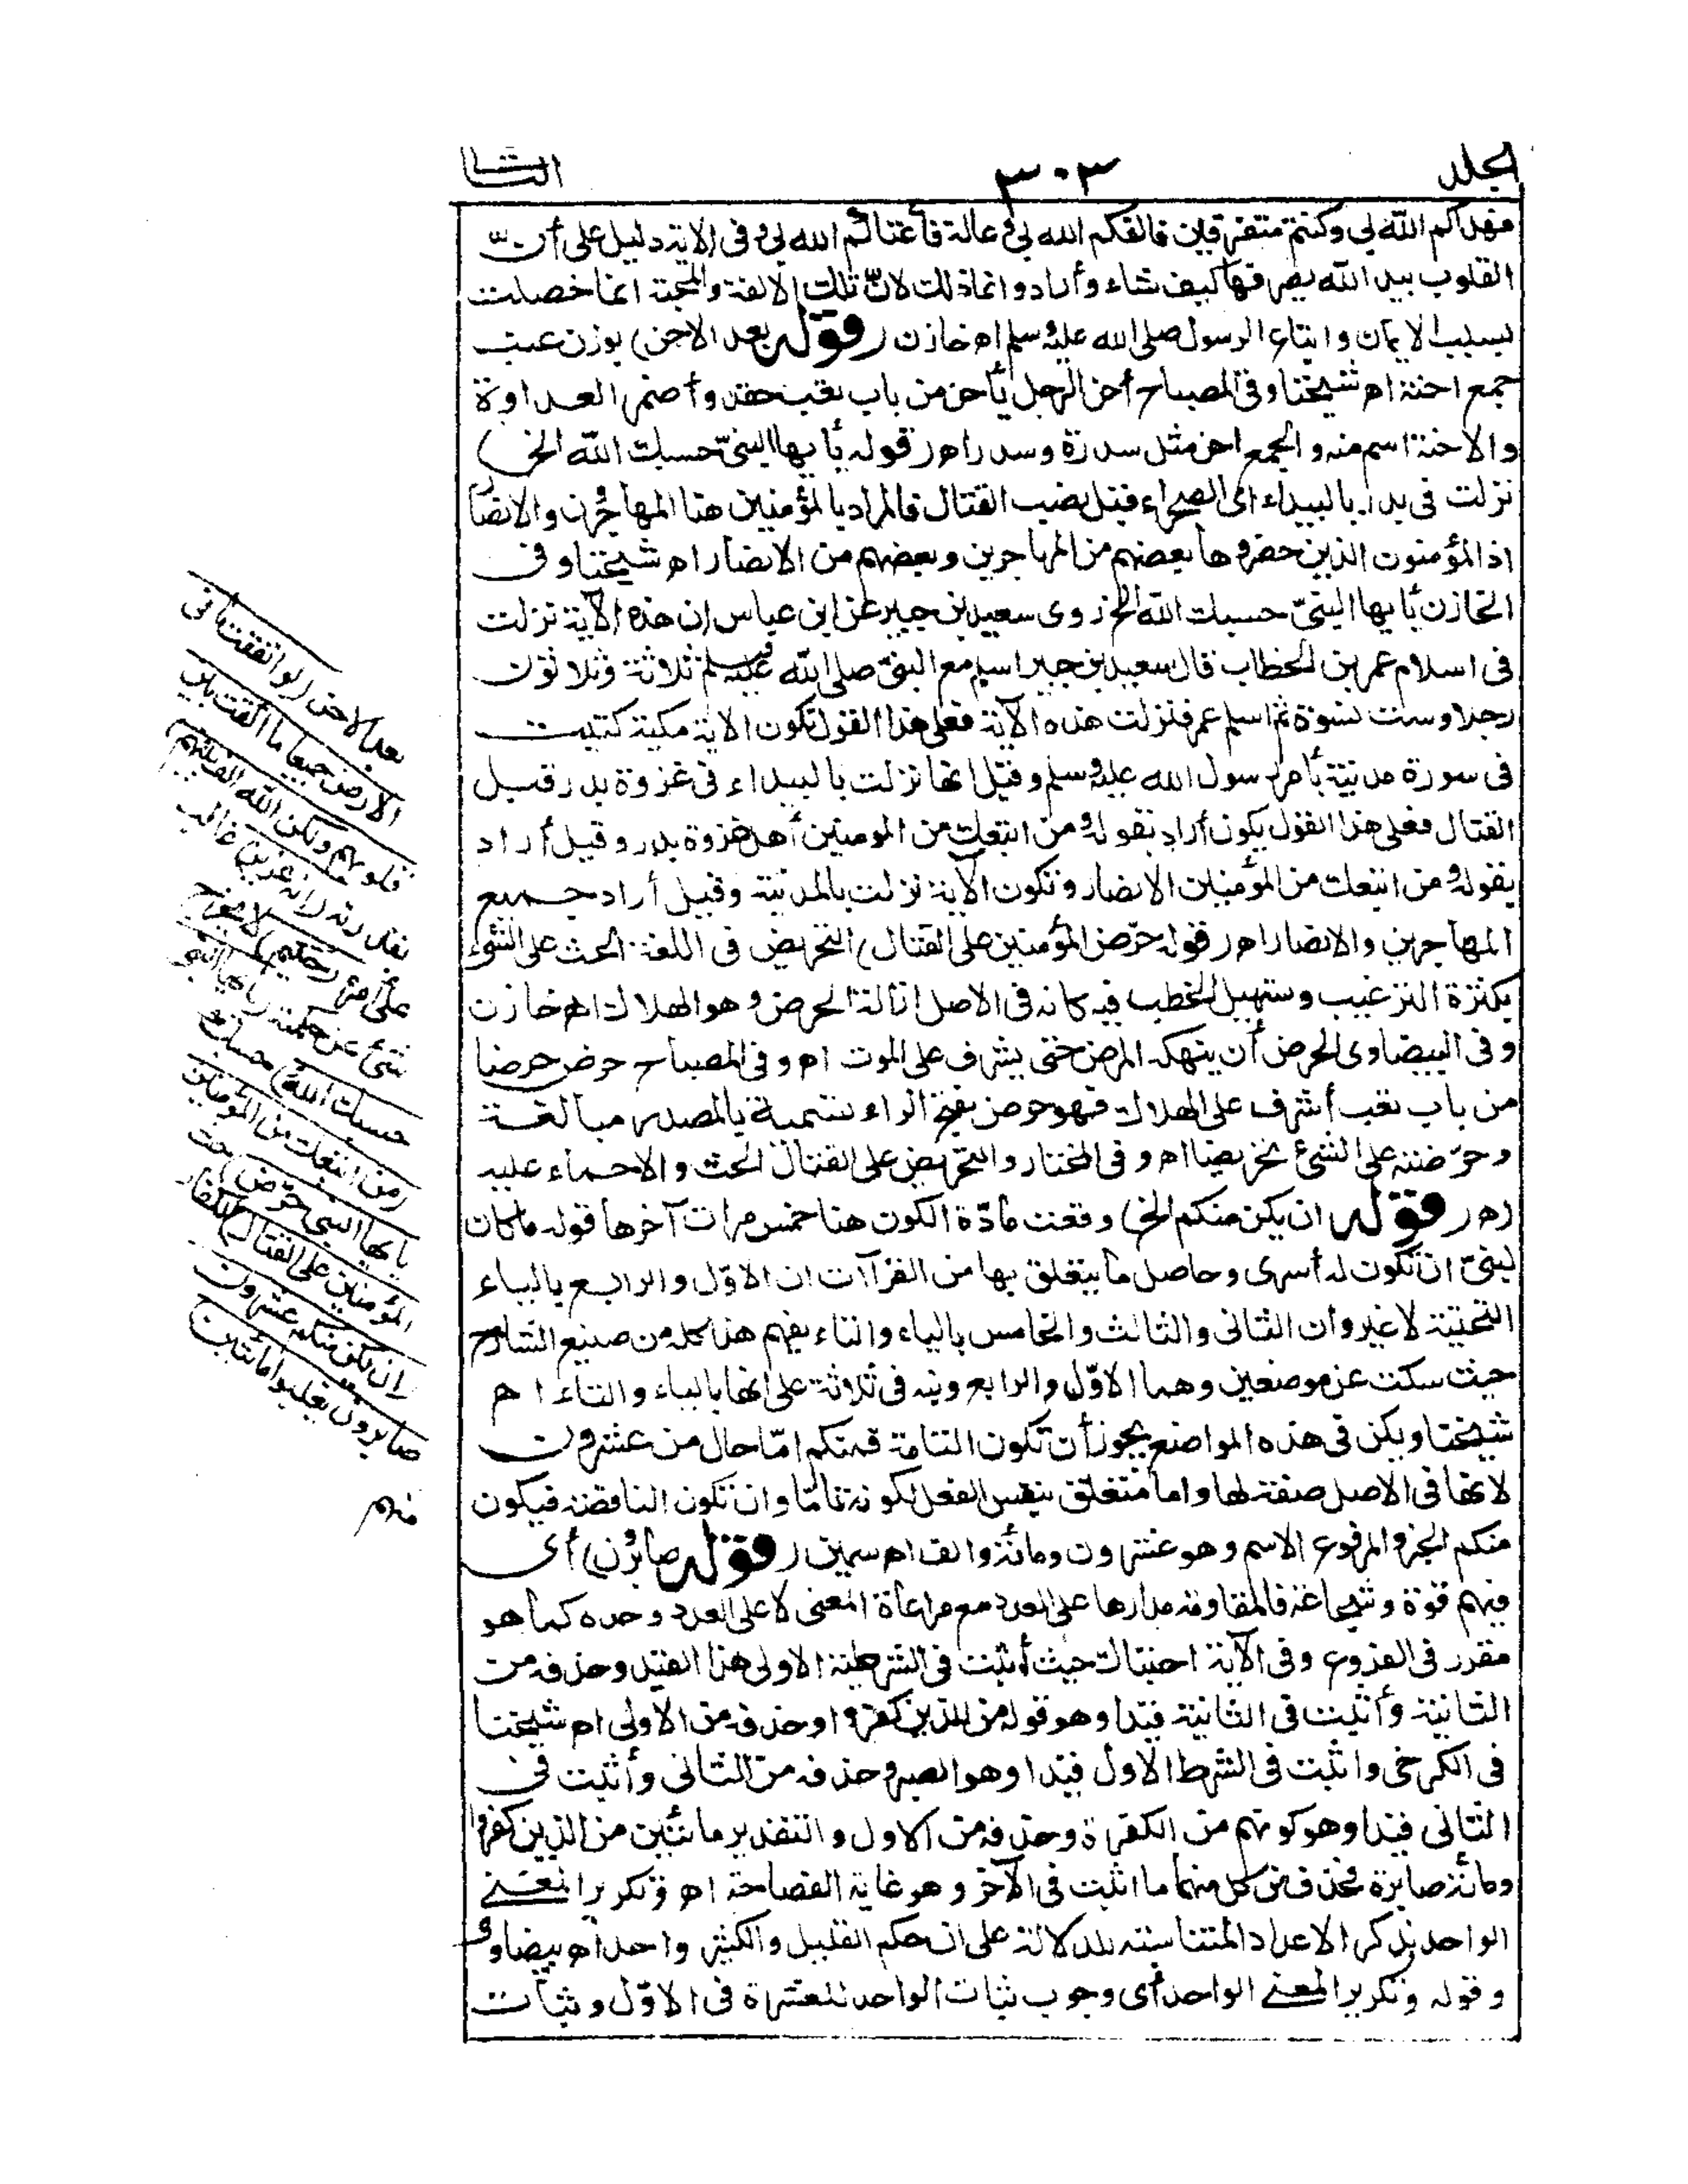 الجلد ٣٠٣ الثا
فهداكم الله بي وكنتم متفرقين فالفكم الله بي وعالة فأغناكم الله بي وفى الاية دليل على أن
القلوب بيد الله يصرفها كيف شاء وأراد وانما ذلك لانّ تلك الالفة والمحبة انما حصلت
بسبب الايمان واتباع الرسول صلى الله عليه وسلم اه خازن (قوله بعد الاحن) بوزن عنب
جمع احنة اه شيخنا وفى المصباح أحن الرجل يأحن من باب تعب حقد وأضمر العداوة
والاحنة اسم منه والجمع احن مثل سدرة وسدر اه (قوله يأيها النبىّ حسبك الله الخ)
نزلت فى بدر بالبيداء أى الصحراء قبل نصب القتال فالمراد بالمؤمنين هنا المهاجرون والانصار
اذ المؤمنون الذين حضروها بعضهم من المهاجرين وبعضهم من الانصار اه شيخنا وفى
الخازن يأيها النبىّ حسبك الله الخ روى سعيد بن جبير عن ابن عباس ان هذه الآية نزلت
فى اسلام عمر بن الخطاب قال سعيد بن جبير اسلم مع النبىّ صلى الله عليه وسلم ثلاثة وثلاثون
رجلا وست نسوة ثم اسلم عمر فنزلت هذه الآية فعلى هذا القول تكون الاية مكية كتبت
فى سورة مدنية بأمر رسول الله عليه وسلم وقيل انها نزلت بالبيداء فى غزوة بدر قبل
القتال فعلى هذا القول يكون أراد بقوله ومن اتبعك من المومنين أهل غزوة بدر وقيل أراد
بقوله ومن اتبعك من المؤمنين الانصار وتكون الآية نزلت بالمدينة وقيل أراد جميع
المهاجرين والانصار اه (قوله حرّض المؤمنين على القتال) التحريض فى اللغة الحث على الشئ
بكثرة الترغيب وتسهيل الخطب فيه كانه فى الاصل ازالة الحرض وهو الهلاك اه خازن
وفى البيضاوى الحرض أن ينهكه المرض حتى يشرف على الموت اه وفى المصباح حرض حرضا
من باب تعب أشرف على الهلاك فهو حرض بفتح الراء تسمية بالمصدر مبالغة
وحرّضته على الشئ تحريضا اه وفى المختار والتحريض على القتال الحث والاحماء عليه
اه (قوله ان يكن منكم الخ) وقعت مادّة الكون هنا خمس مرات آخرها قوله ما كان
لنبىّ ان تكون له أسرى وحاصل ما يتعلق بها من القرآات ان الاوّل والرابع بالياء
التحتية لا غير وأن الثانى والثالث والخامس بالياء والتاء يفهم هذا كله من صنيع الشارح
حيث سكت عن موضعين وهما الاوّل والرابع ونبه فى ثلاثة على انها بالياء والتاء اه
شيخنا ويكن فى هذه المواضع يجوز أن تكون التامة فمنكم امّا حال من عشرون
لانها فى الاصل صفة لها واما متعلق بنفس الفعل لكونه تامّا وان تكون الناقصة فيكون
منكم الخبر والمرفوع الاسم وهو عشرون ومائة والف اه سمين (قوله صابرون) أى
فيهم قوة وشجاعة فالمقاومة مدارها على العدد مع مراعاة المعنى لا على العدد وحده كما هو
مقرر فى الفروع وفى الآية احتباك حيث أثبت فى الشرطية الاولى هذا القيد وحذفه من
الثانية وأثبت فى الثانية قيدا وهو قوله من الذين كفروا وحذفه من الأولى اه شيخنا
فى الكرخى واثبت فى الشرط الأول قيدا وهو الصبر وحذفه من الثانى وأثبت فى
الثانى قيدا وهو كونهم من الكفرة وحذفه من الاول والتقدير مائتين من الذين كفروا
ومائة صابرة فحذف من كل منهما ما اثبت فى الآخر وهو غاية الفصاحة اه وتكرير المعنى
الواحد بذكر الاعداد المتناسبة للدلالة على ان حكم القليل والكثير واحد اه بيضاوى
وقوله وتكرير المعنى الواحد أى وجوب ثبات الواحد للعشرة فى الاوّل وثبات
بعد الاحن (لو انفقت ما فى
الارض جميعا ما ألفت بين
قلوبهم ولكن الله الف بينهم)
بقدرته (انه عزيز) غالب
على أمره (حكيم) لا يخرج
شئ عن حكمته (يأيها النبى
حسبك الله) حسبك
(ومن اتبعك من المؤمنين
يايها النبى حرّض) حث
المؤمنين على القتال) للكفار
(ان يكن منكم عشرون
صابرون يغلبوا مائتين
منهم